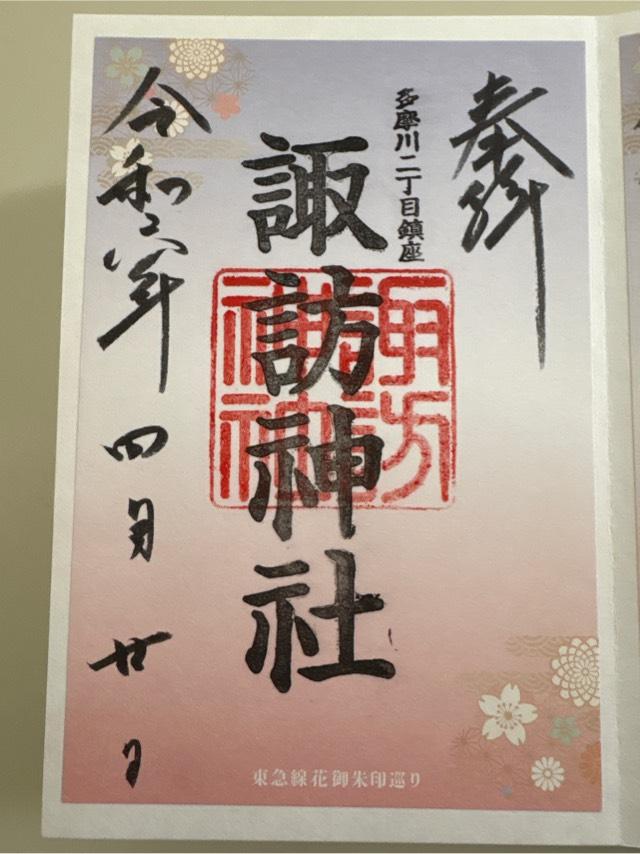 奉拝
多摩川二丁目鎮座
諏訪神社
諏訪
神社
令和六年四月廿日
東急線花御朱印巡り